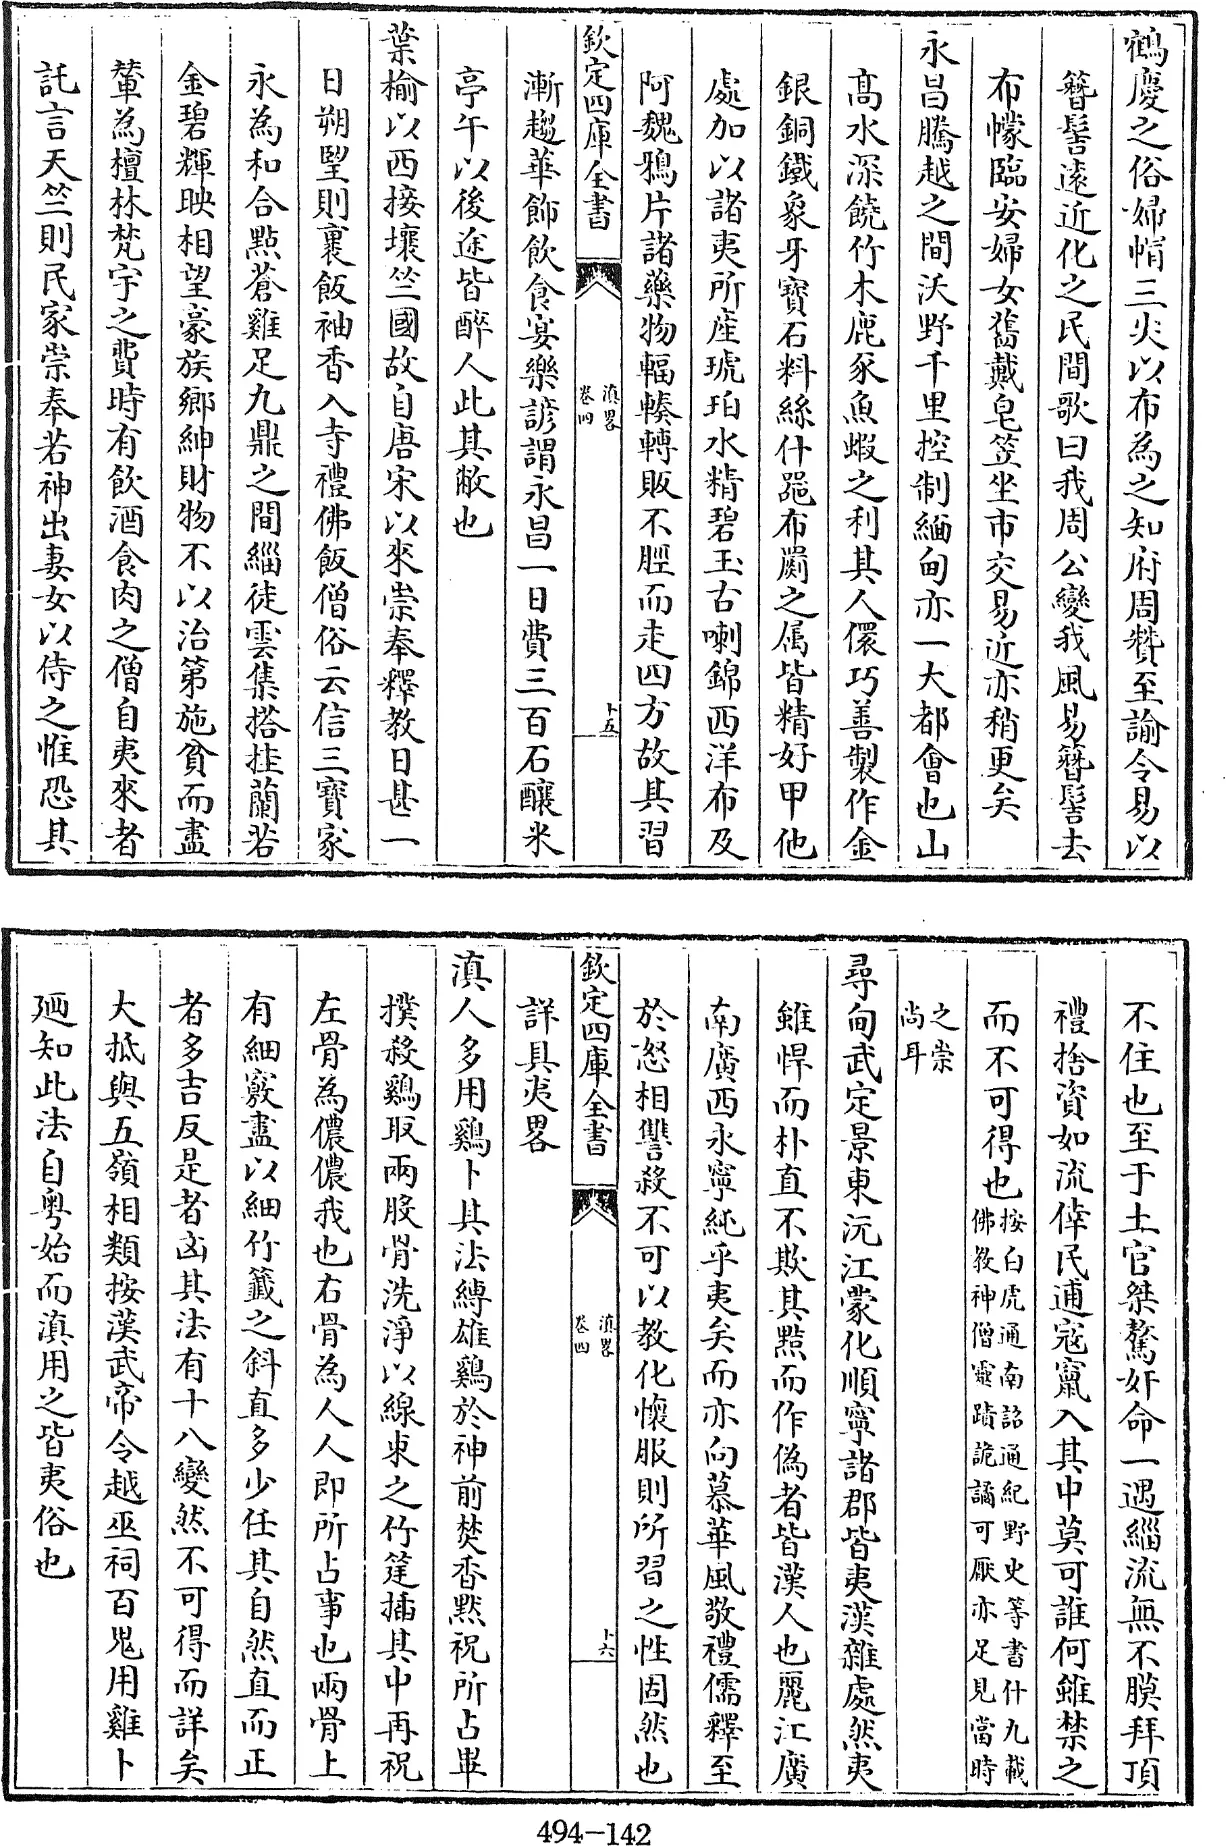 鶴慶之俗婦㡌三尖以布為之知府周贊至諭令易以
簪髻遠近化之民間歌曰我周公變我風易簪髻去
布幪臨安婦女舊戴皂笠坐市交易近亦稍更矣
永昌騰越之間沃野千里控制緬甸亦一大都會也山
髙水深饒竹木鹿豕魚蝦之利其人儇巧善製作金
銀銅鐵象牙寳石料絲什噐布罽之属皆精好甲他
處加以諸夷所産琥珀水精碧玉古喇錦西洋布及
阿魏鴉片諸藥物輻輳轉販不脛而走四方故其習
欽定四庫全書
滇畧
卷四
十五
漸趨華飾飲食宴樂諺謂永昌一日費三百石釀米
亭午以後途皆醉人此其敝也
葉榆以西接壤竺國故自唐宋以來崇奉釋教日甚一
日朔望則裹飯袖香入寺禮佛飯僧俗云信三寳家
永為和合點蒼雞足九鼎之間緇徒雲集搭挂蘭若
金碧輝映相望豪族鄉紳財物不以治第施貧而盡
輦為檀林梵宇之費時有飲酒食肉之僧自夷來者
託言天竺則民家崇奉若神出妻女以侍之惟恐其
不住也至于土官桀驁奸命一遇緇流無不膜拜頂
禮捨資如流倖民逋冦竄入其中莫可誰何雖禁之
而不可得也按白虎通南詔通紀野史等書什九載
佛教神僧靈蹟詭譎可厭亦足見當時
之崇
尚耳
尋甸武定景東沅江蒙化順寧諸郡皆夷漢雜處然夷
雖悍而朴直不欺其黠而作偽者皆漢人也麗江廣
南廣西永寧純乎夷矣而亦向慕華風敬禮儒釋至
於怒相讐殺不可以教化懷服則所習之性固然也
欽定四庫全書
滇畧
卷四
十六
詳具夷畧
滇人多用鷄卜其法縛雄鷄於神前焚香黙祝所占畢
撲殺鷄取兩股骨洗淨以線束之竹筳插其中再祝
左骨為儂儂我也右骨為人人即所占事也兩骨上
有細竅盡以細竹籖之斜直多少任其自然直而正
者多吉反是者凶其法有十八變然不可得而詳矣
大抵與五嶺相類按漢武帝令越巫祠百鬼用雞卜
廼知此法自粤始而滇用之皆夷俗也
494-142